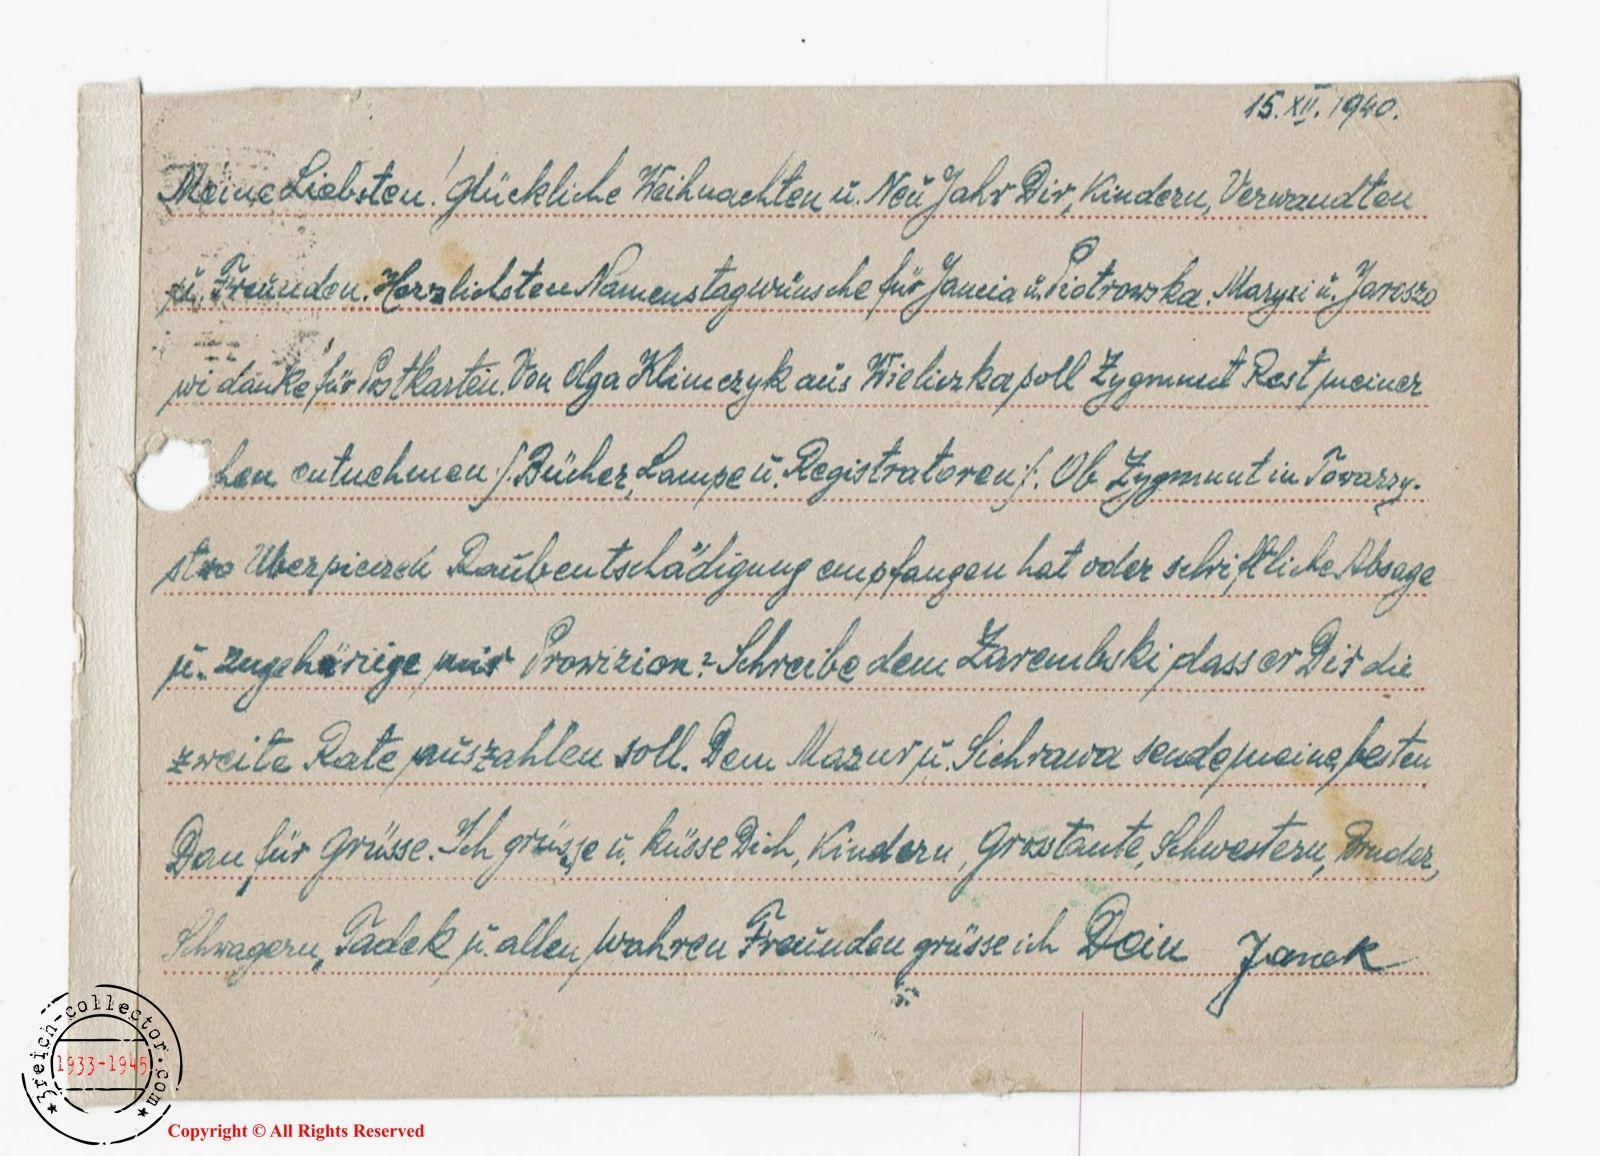 15. XII. 1940.
Meine Liebsten! Glückliche Weihnachten u. Neu Jahr Dir, Kindern, Verwandten
u. Freunden. Herzlichsten Namenstagwünsche für Jancia u. Piotrowska. Marysi u. Jaroszo
wi danke für Postkarten. Von Olga Klimczyk aus Wieliczka soll Zygmunt Rest meiner
hen entnehmen /. Bücher, Lampe u. Registratoren /. Ob Zygmunt in Towarzy-
stwo Ubezpieczeń Raubentschädigung empfangen hat oder schriftliche Absage
u. zugehörige mir Prowizion? Schreibe dem Zarembski dass er Dir die
zweite Rate auszahlen soll. Dem Mazur u. Sichrawa sende meine besten
Dan für Grüsse. Ich grüsse u. küsse Dich, Kindern, Grostante, Schwestern, Bruder,
Schwagern, Tadek u. allen wahren Freunden grüsse ich Dein Janek
3reich-collector.com
1933-1945
Copyright © All Rights Reserved